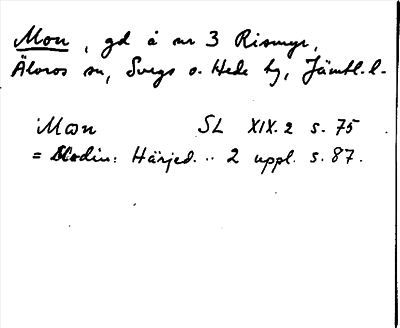 Mon, gd å nr 3 Rismyr,
Älvros sn, Svegs o. Hede tg, Jämtl. l.
Mon SL XIX.2 s. 75
= Modin: Härjed. .. 2 uppl. s. 87.